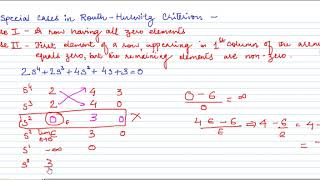 Special cases in Routh-Hurwitz Criterion -
se I - A row having all zero elements
se II - First element of a row, appearing in 1st column of the array
equals zero, but the remaining elements are non-zero.
2s⁴+2s³+4s²+4s+3=0
s⁴ 2 4 3
s³ 2 4 0
s² 0 3 0 ×
s¹ -∞ 0
s⁰ 3
0-6/0 = ∞
4ϵ-6/ϵ ⇒ 4-6/ϵ =